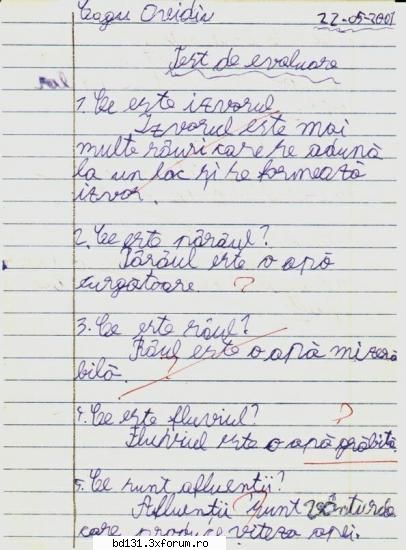 Cazu Ovidiu 22-05-2001
Test de evaluare
1. Ce este izvorul
Izvorul este mai
multe râuri care se adună
la un loc și se formează
izvor.
2. Ce este pârâul?
Pârâul este o apă
curgatoare. ?
3. Ce este râul?
Râul este o apă mizera
bilă. ?
4. Ce este fluviul? ?
Fluviul este o apă grăbită.
5. Ce sunt afluenții?
Afluenții ? sunt
care produce viteza apei.
bd131.3xforum.ro